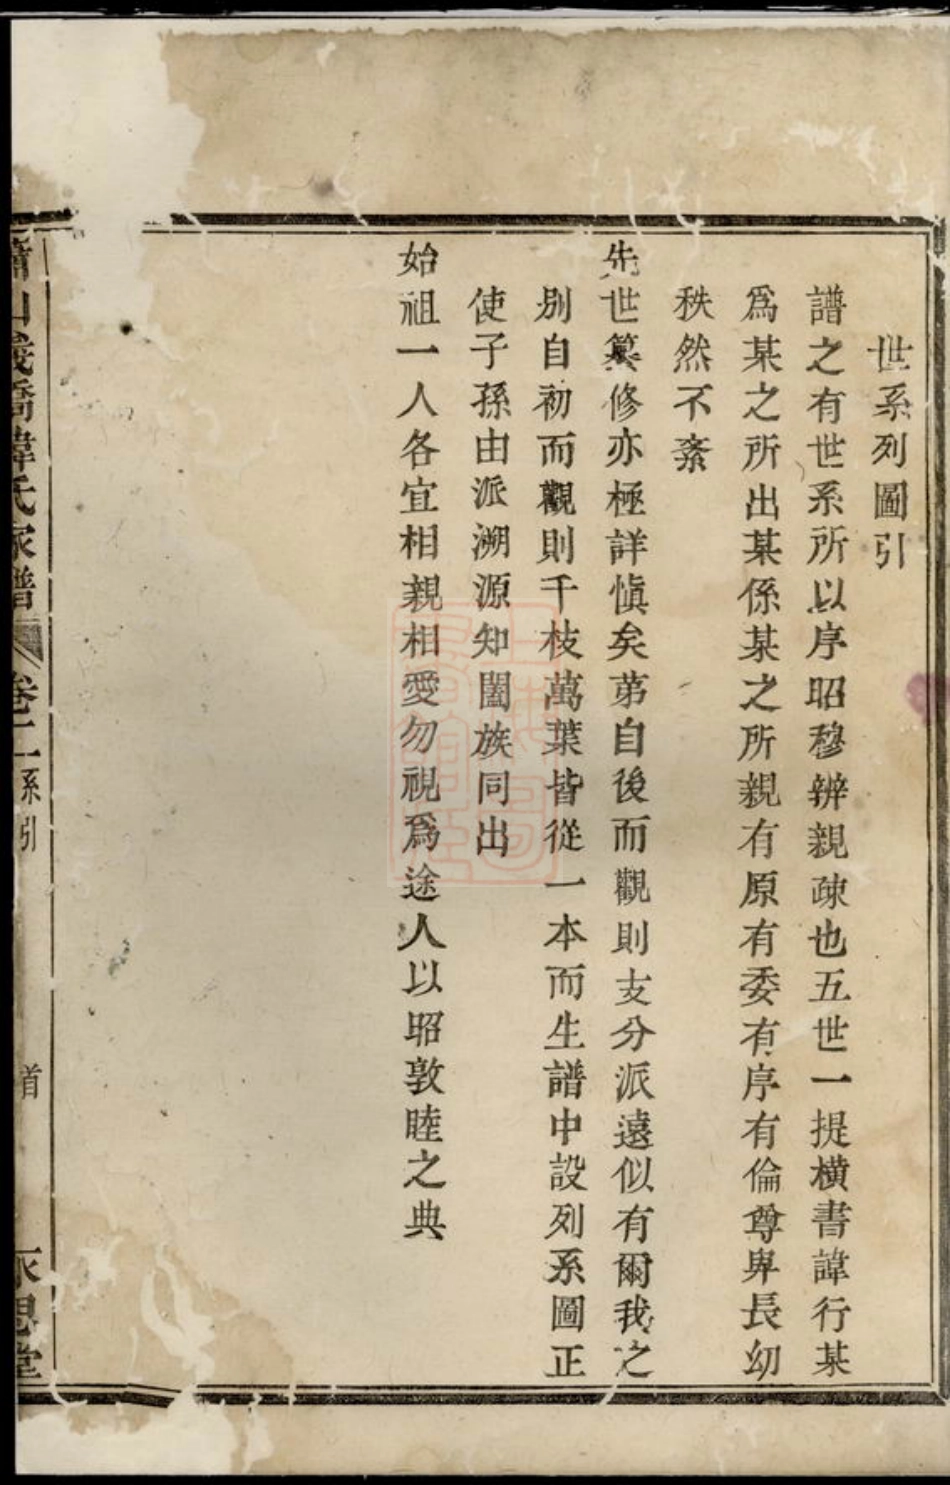 世系列圖引
譜之有世系所以序昭穆辨親疎也五世一提橫書諱行某
爲某之所出某係某之所親有原有委有序有倫尊卑長幼
秩然不紊
先世纂修亦極詳愼矣苐自後而觀則支分派遠似有爾我之
別自初而觀則千枝萬葉皆從一本而生譜中設列系圖正
使子孫由派溯源知闔族同出
始祖一人各宜相親相愛勿視爲途人以昭敦睦之典
山義橋韓氏家譜
卷二
系引
首
思堂